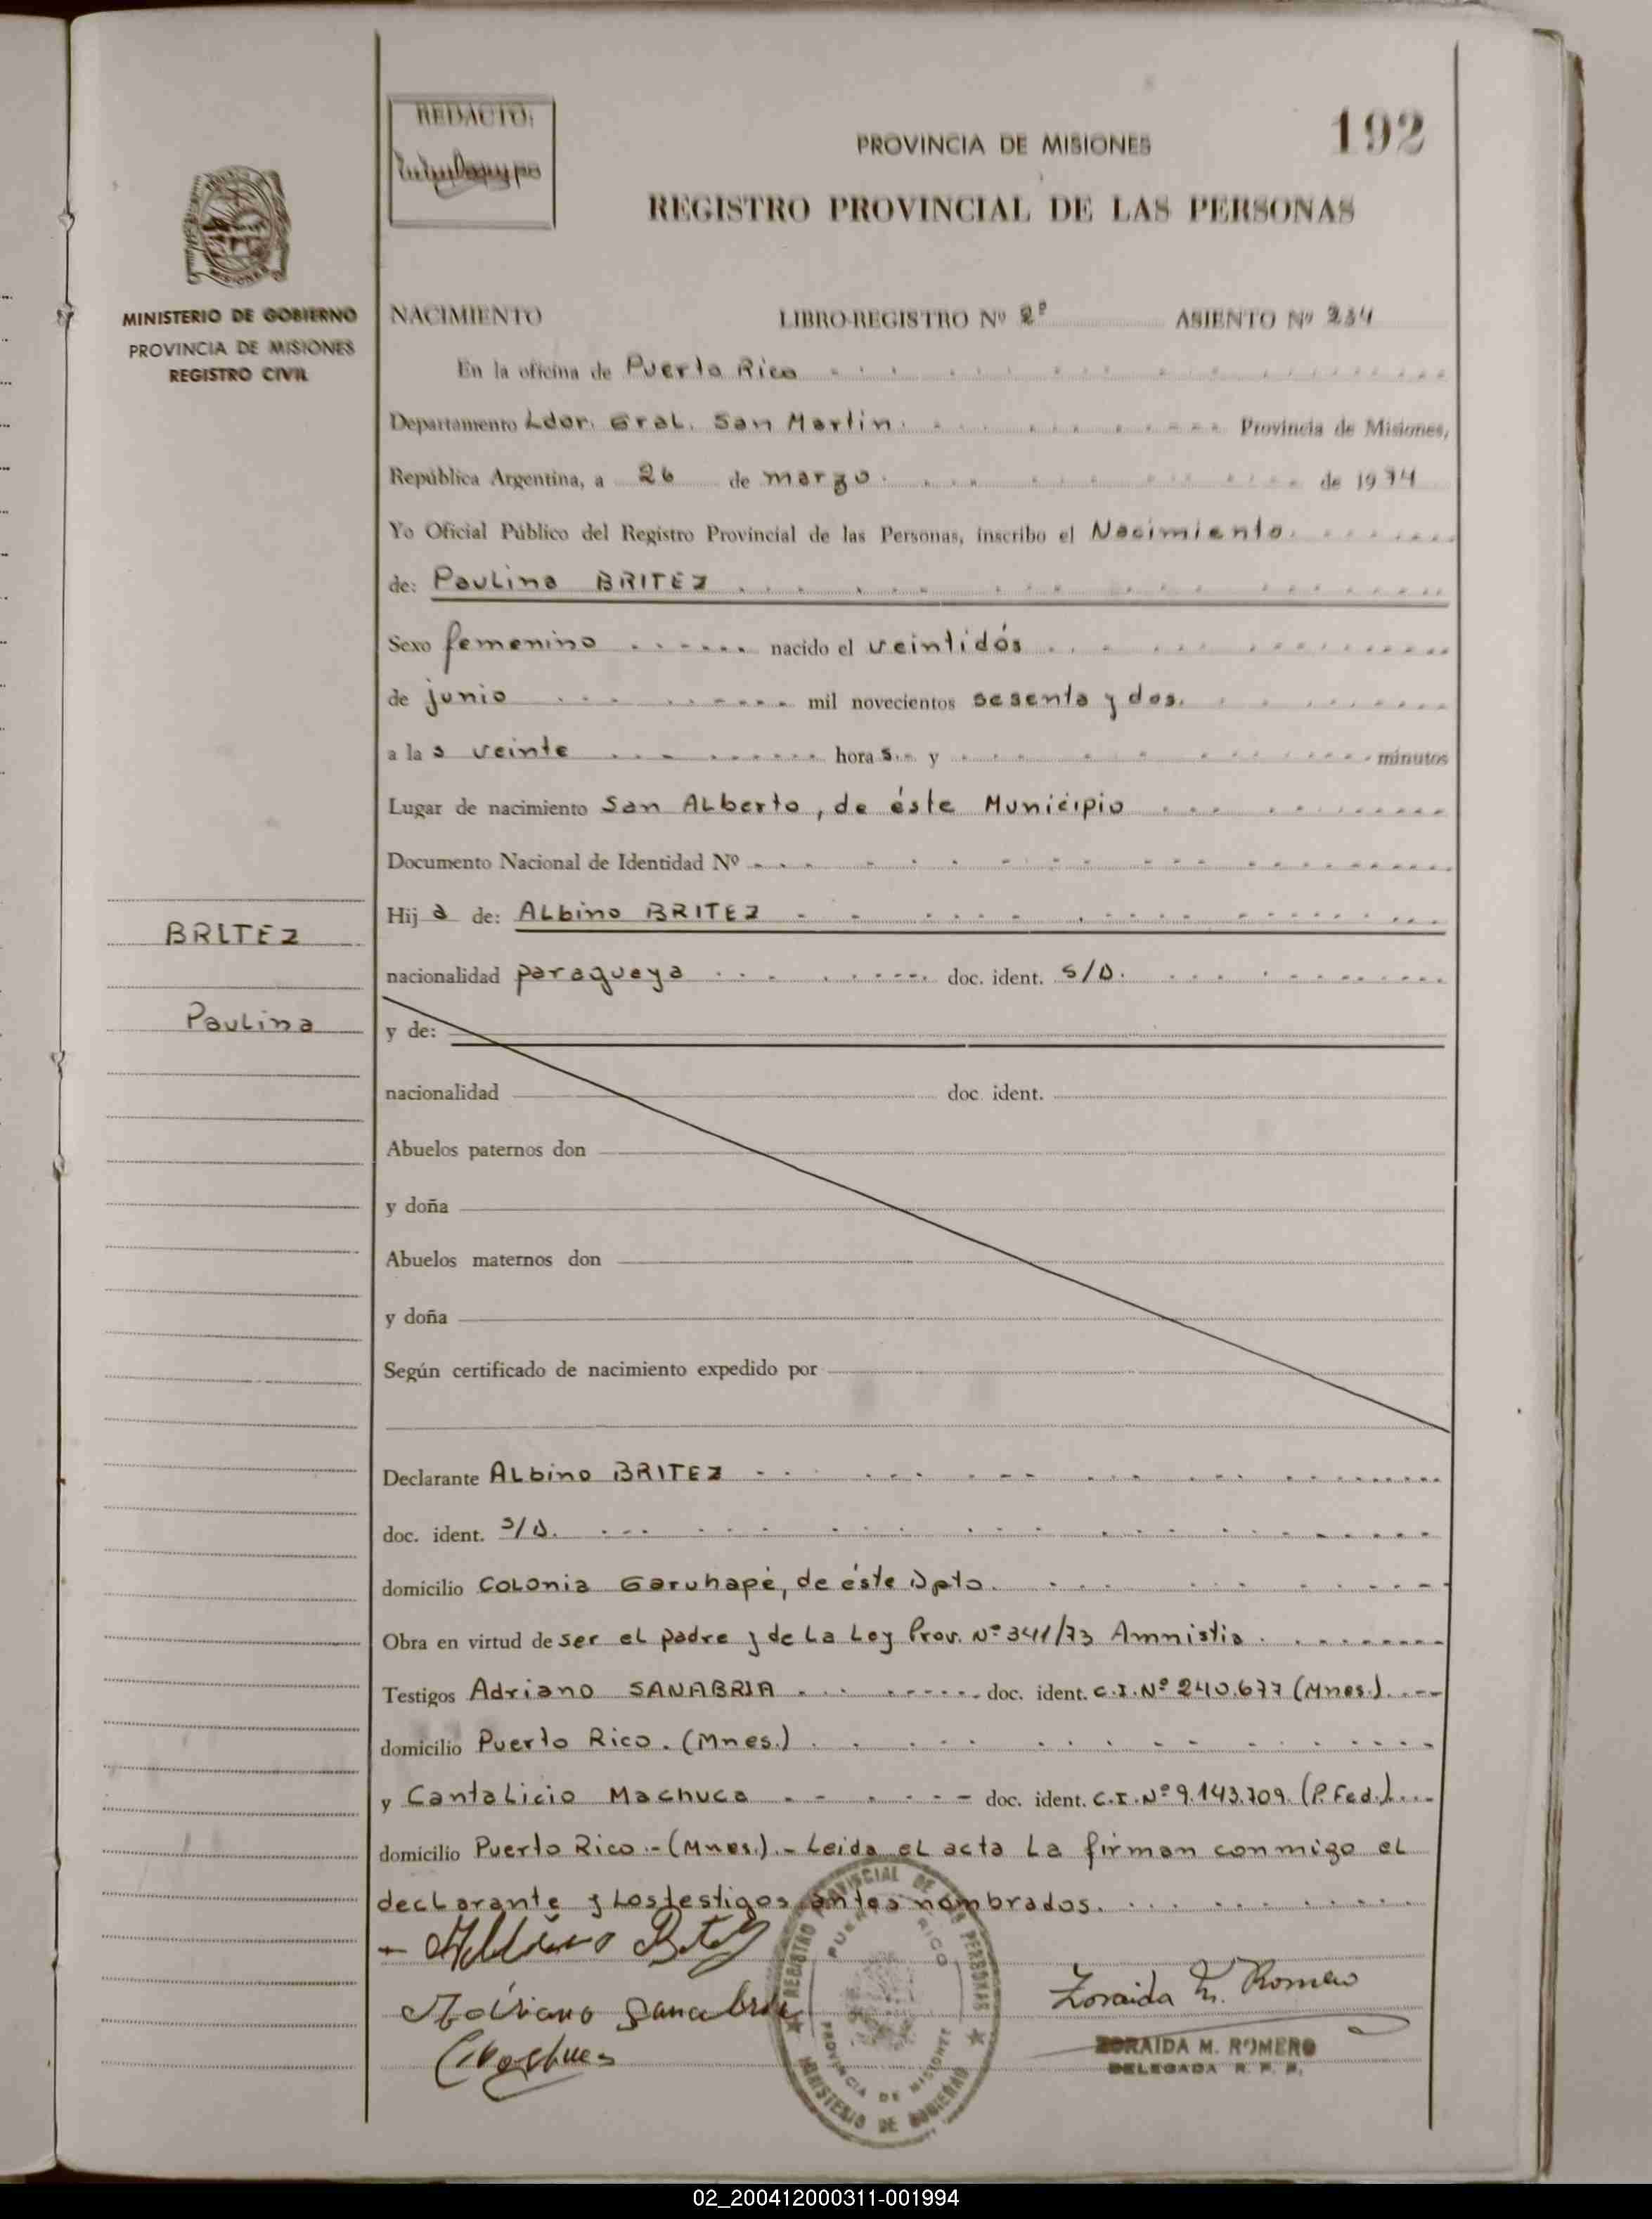 REDACTO:
PROVINCIA DE MISIONES
192
REGISTRO PROVINCIAL DE LAS PERSONAS
MINISTERIO DE GOBIERNO
PROVINCIA DE MISIONES
REGISTRO CIVIL
NACIMIENTO LIBRO-REGISTRO Nº 2º ASIENTO Nº 234
En la oficina de Puerto Rico
Departamento Ldor. Gral. San Martín. Provincia de Misiones,
República Argentina, a 26 de marzo de 1974
Yo Oficial Público del Registro Provincial de las Personas, inscribo el Nacimiento.
de: Paulina BRITEZ
Sexo femenino nacido el veintidós
de junio mil novecientos sesenta y dos.
a la s veinte hora s. y minutos
Lugar de nacimiento San Alberto, de éste Municipio
Documento Nacional de Identidad Nº
Hij a de: Albino BRITEZ
BRITEZ
nacionalidad paraguaya doc. ident. S/D.
Paulina
y de:
nacionalidad doc. ident.
Abuelos paternos don
y doña
Abuelos maternos don
y doña
Según certificado de nacimiento expedido por
Declarante Albino BRITEZ
doc. ident. S/D.
domicilio Colonia Garuhapé, de éste Dpto.
Obra en virtud de ser el padre y de La Ley Prov. Nº 341/73 Amnistia.
Testigos Adriano SANABRIA doc. ident. C.I. Nº 240.677 (Mnes.).
domicilio Puerto Rico. (Mnes.)
y Cantalicio Machuca doc. ident. C.I. Nº 9.143.709. (P. Fed.).
domicilio Puerto Rico.- (Mnes.).- Leida el acta La firman conmigo el
declarante y los testigos antes nombrados.
Adriano Sanabria
Zoraida M. Romero
REGISTRO PROVINCIAL DE LAS PERSONAS
PUERTO RICO
PROVINCIA DE MISIONES
MINISTERIO DE GOBIERNO
ZORAIDA M. ROMERO
DELEGADA R. P. P.
02_200412000311-001994